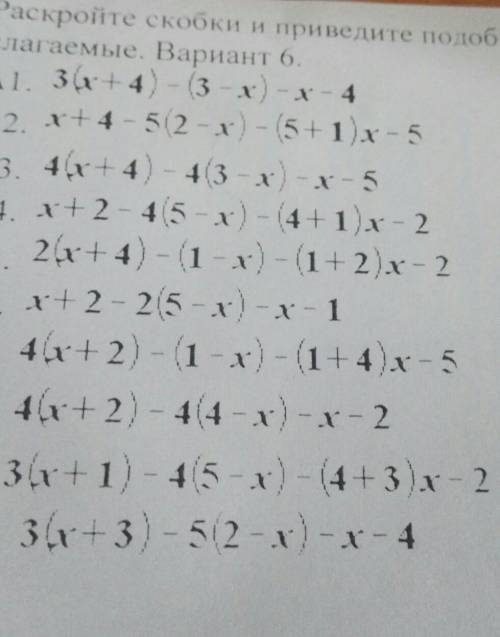 Раскройте скобки и приведите подоб
слагаемые. Вариант 6.
1. 3(x+4)-(3-x)-x-4
2. x+4-5(2-x)-(5+1)x-5
3. 4(x+4)-4(3-x)-x-5
4. x+2-4(5-x)-(4+1)x-2
2(x+4)-(1-x)-(1+2)x-2
x+2-2(5-x)-x-1
4(x+2)-(1-x)-(1+4)x-5
4(x+2)-4(4-x)-x-2
3(x+1)-4(5-x)-(4+3)x-2
3(x+3)-5(2-x)-x-4